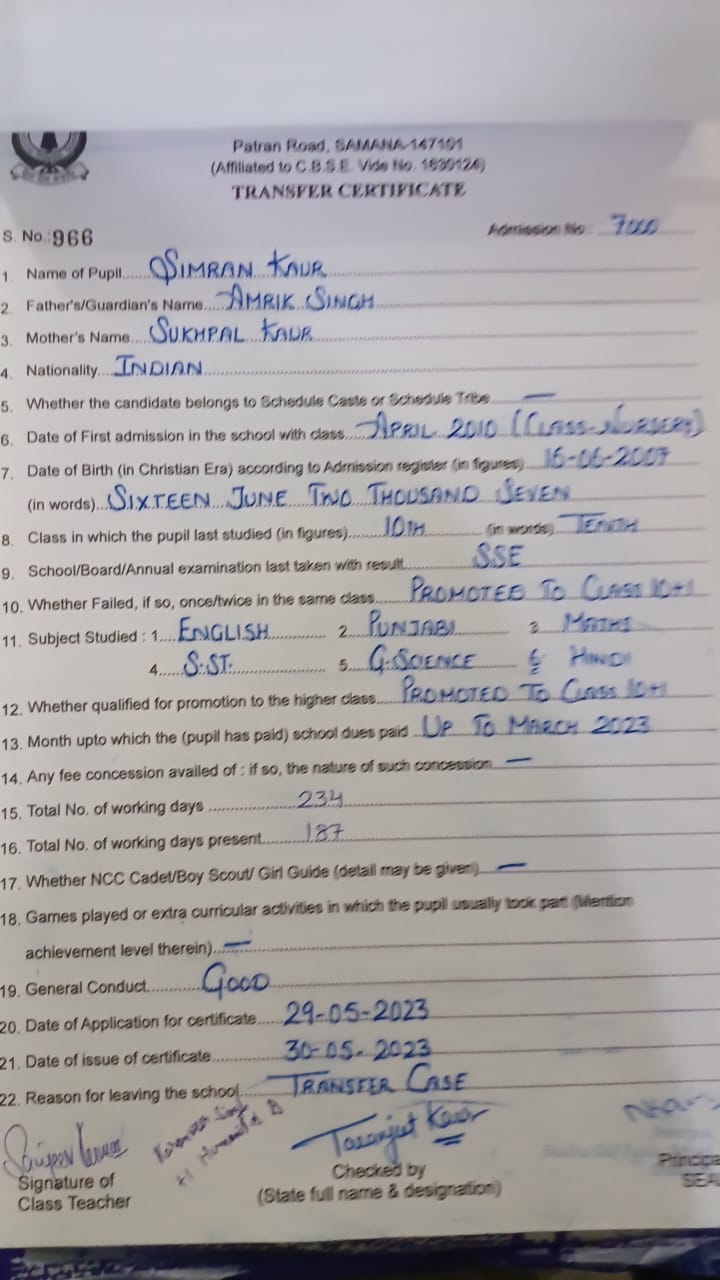 Patran Road, SAMANA-147101
(Affiliated to C.B.S.E. Vide No. 1630124)
TRANSFER CERTIFICATE
S. No.:966 Admission No. 7000
1. Name of Pupil......SIMRAN KAUR
2. Father's/Guardian's Name....AMRIK SINGH
3. Mother's Name....SUKHPAL KAUR
4. Nationality...INDIAN
5. Whether the candidate belongs to Schedule Caste or Schedule Tribe —
6. Date of First admission in the school with class....APRIL 2010 (CLASS-NURSERY)
7. Date of Birth (in Christian Era) according to Admission register (in figures) 16-06-2007
(in words)...SIXTEEN JUNE TWO THOUSAND SEVEN
8. Class in which the pupil last studied (in figures).......10TH (in words) TENTH
9. School/Board/Annual examination last taken with result SSE
10. Whether Failed, if so, once/twice in the same class PROMOTED TO CLASS 10+1
11. Subject Studied : 1....ENGLISH 2. PUNJABI 3. MATHS
4.....S.ST. 5. G.SCIENCE 6 HINDI
12. Whether qualified for promotion to the higher class PROMOTED TO CLASS 10+1
13. Month upto which the (pupil has paid) school dues paid UP TO MARCH 2023
14. Any fee concession availed of : if so, the nature of such concession —
15. Total No. of working days 234
16. Total No. of working days present 187
17. Whether NCC Cadet/Boy Scout/ Girl Guide (detail may be given) —
18. Games played or extra curricular activities in which the pupil usually took part (Mention
achievement level therein) —
19. General Conduct GOOD
20. Date of Application for certificate 29-05-2023
21. Date of issue of certificate 30-05-2023
22. Reason for leaving the school TRANSFER CASE
Taranjut Kaur
Signature of
Class Teacher
Checked by
(State full name & designation)
Principa
SEA